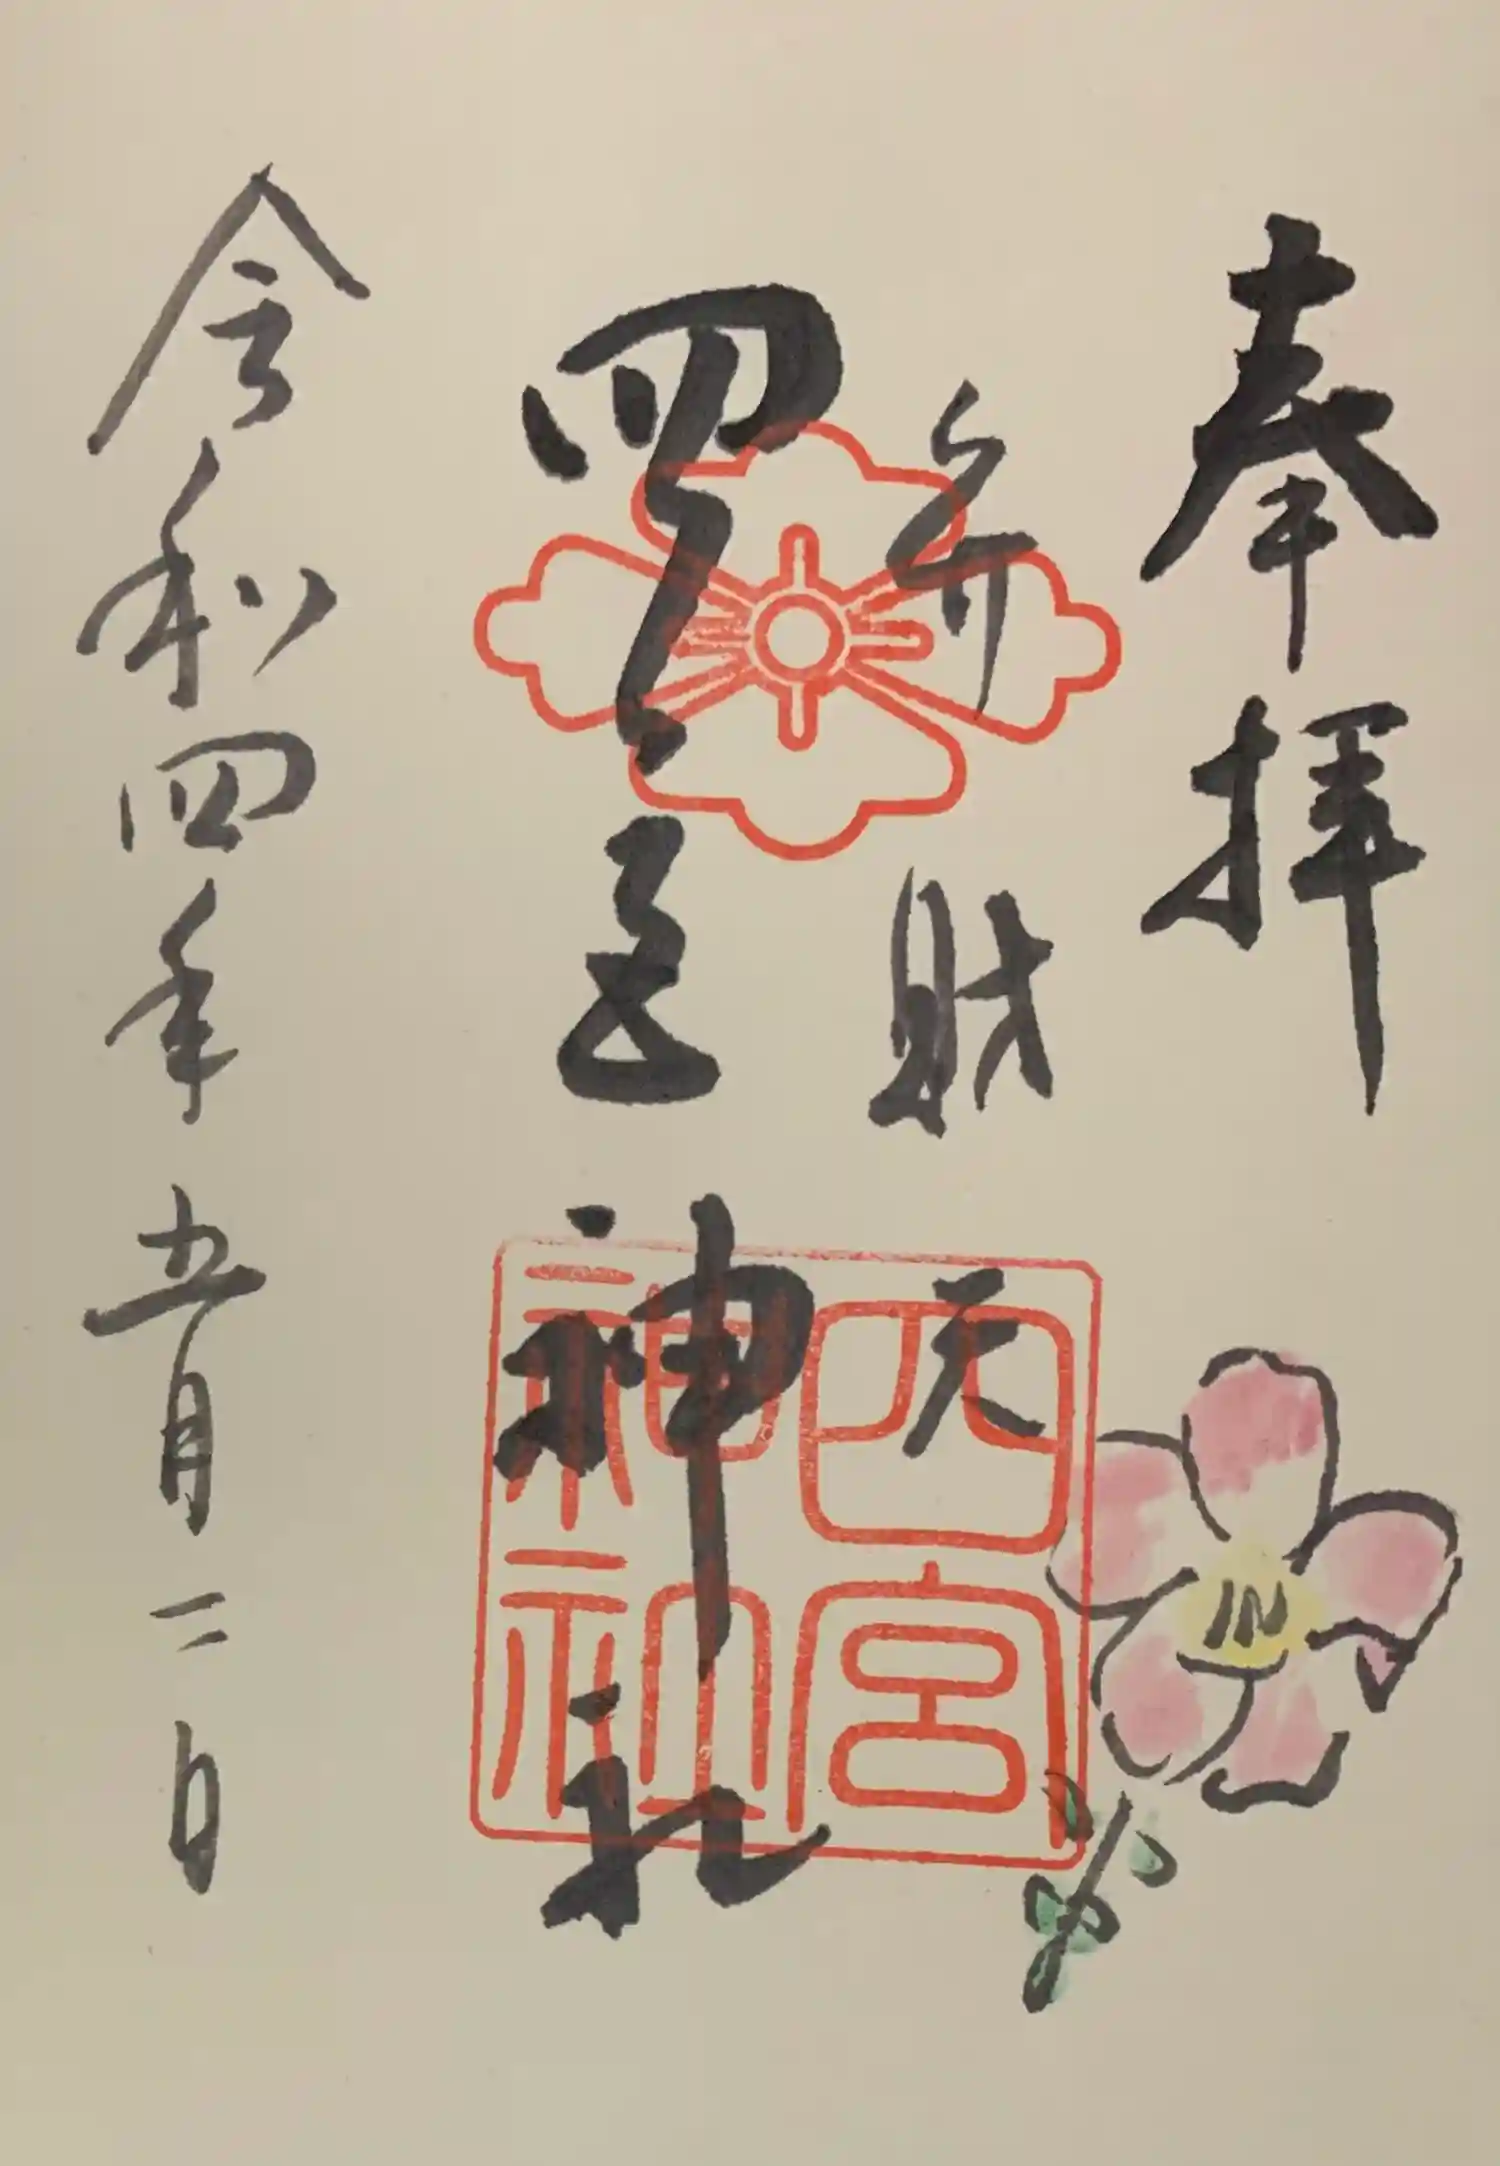 奉拝
弁財天
四宮神社
四宮神社
令和四年五月二日